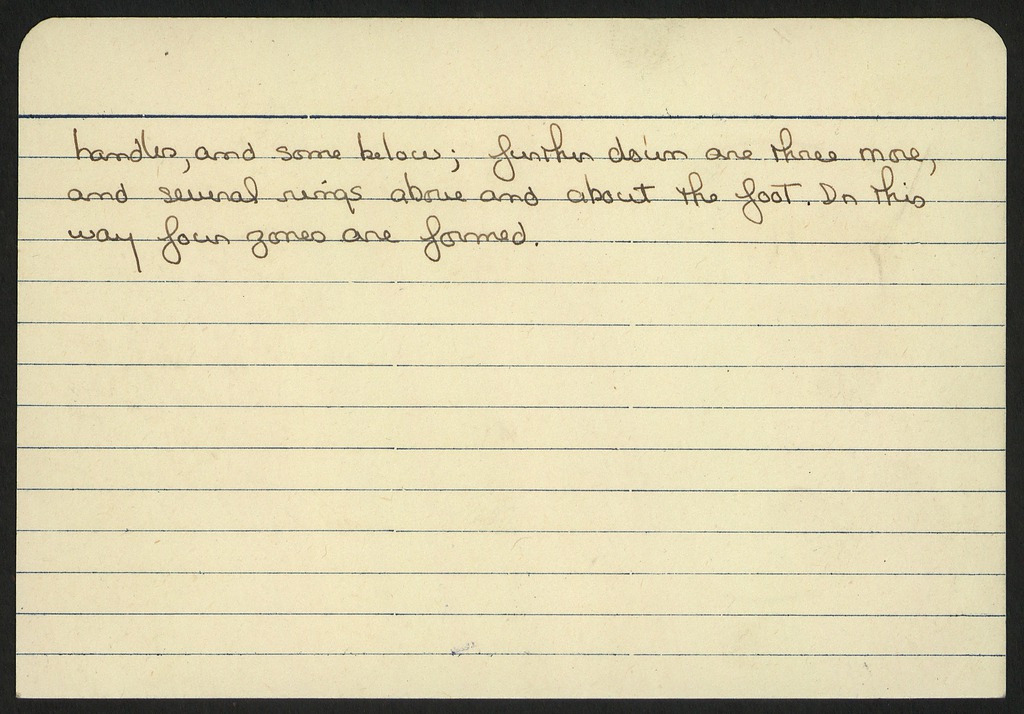 handles, and some below; further down are three more,
and several rings above and about the foot. In this
way four zones are formed.